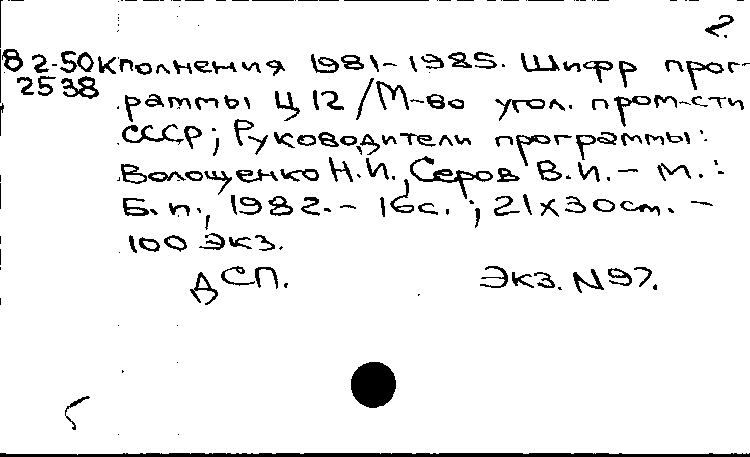 2.
82-50кполнения 1981-1985. Шифр прог-
2538 раммы Ц 12/М-во угол. пром-сти
СССР; Руководители программы:
Волощенко Н.И., Серов В.И. - М.:
Б.п., 1982. - 16с.; 21х30см. -
100 экз.
ДСП. Экз. N 97.